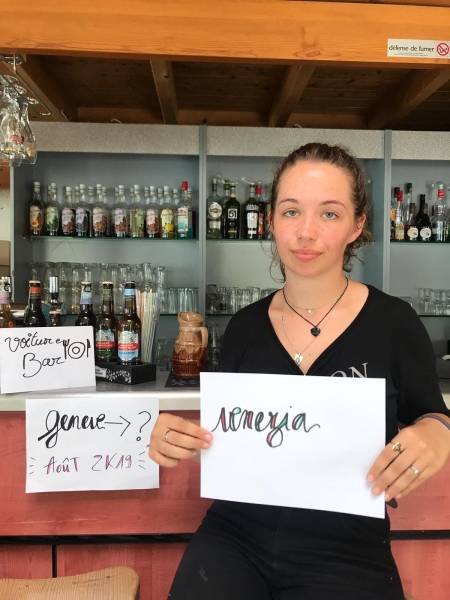 défense de fumer
Voiture
Bar
geneve → ?
Août 2K19
venezia
ON